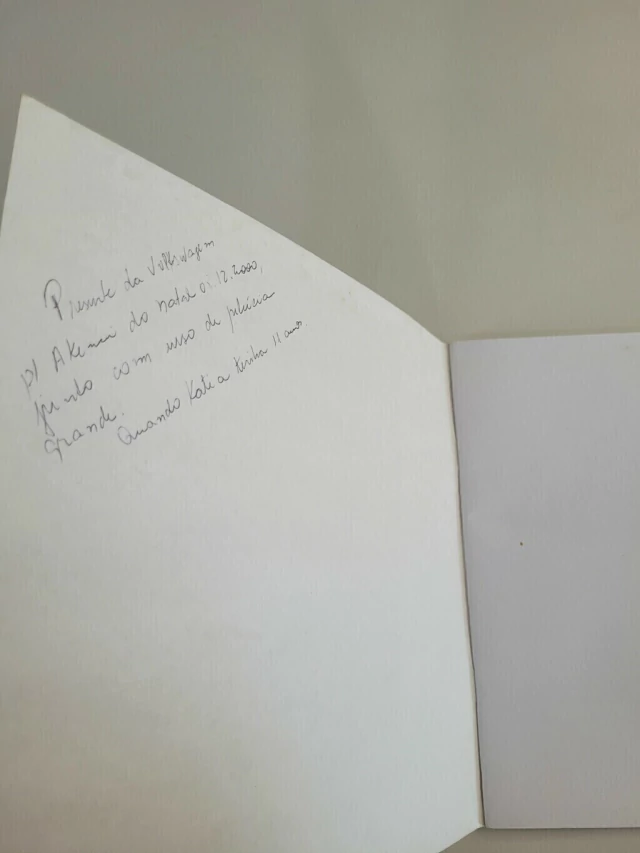 Presente da Volkswagem
p/ Akemi do natal 01.12.2000,
junto com urso de pelúcia
grande.
Quando Katia tinha 11 anos.